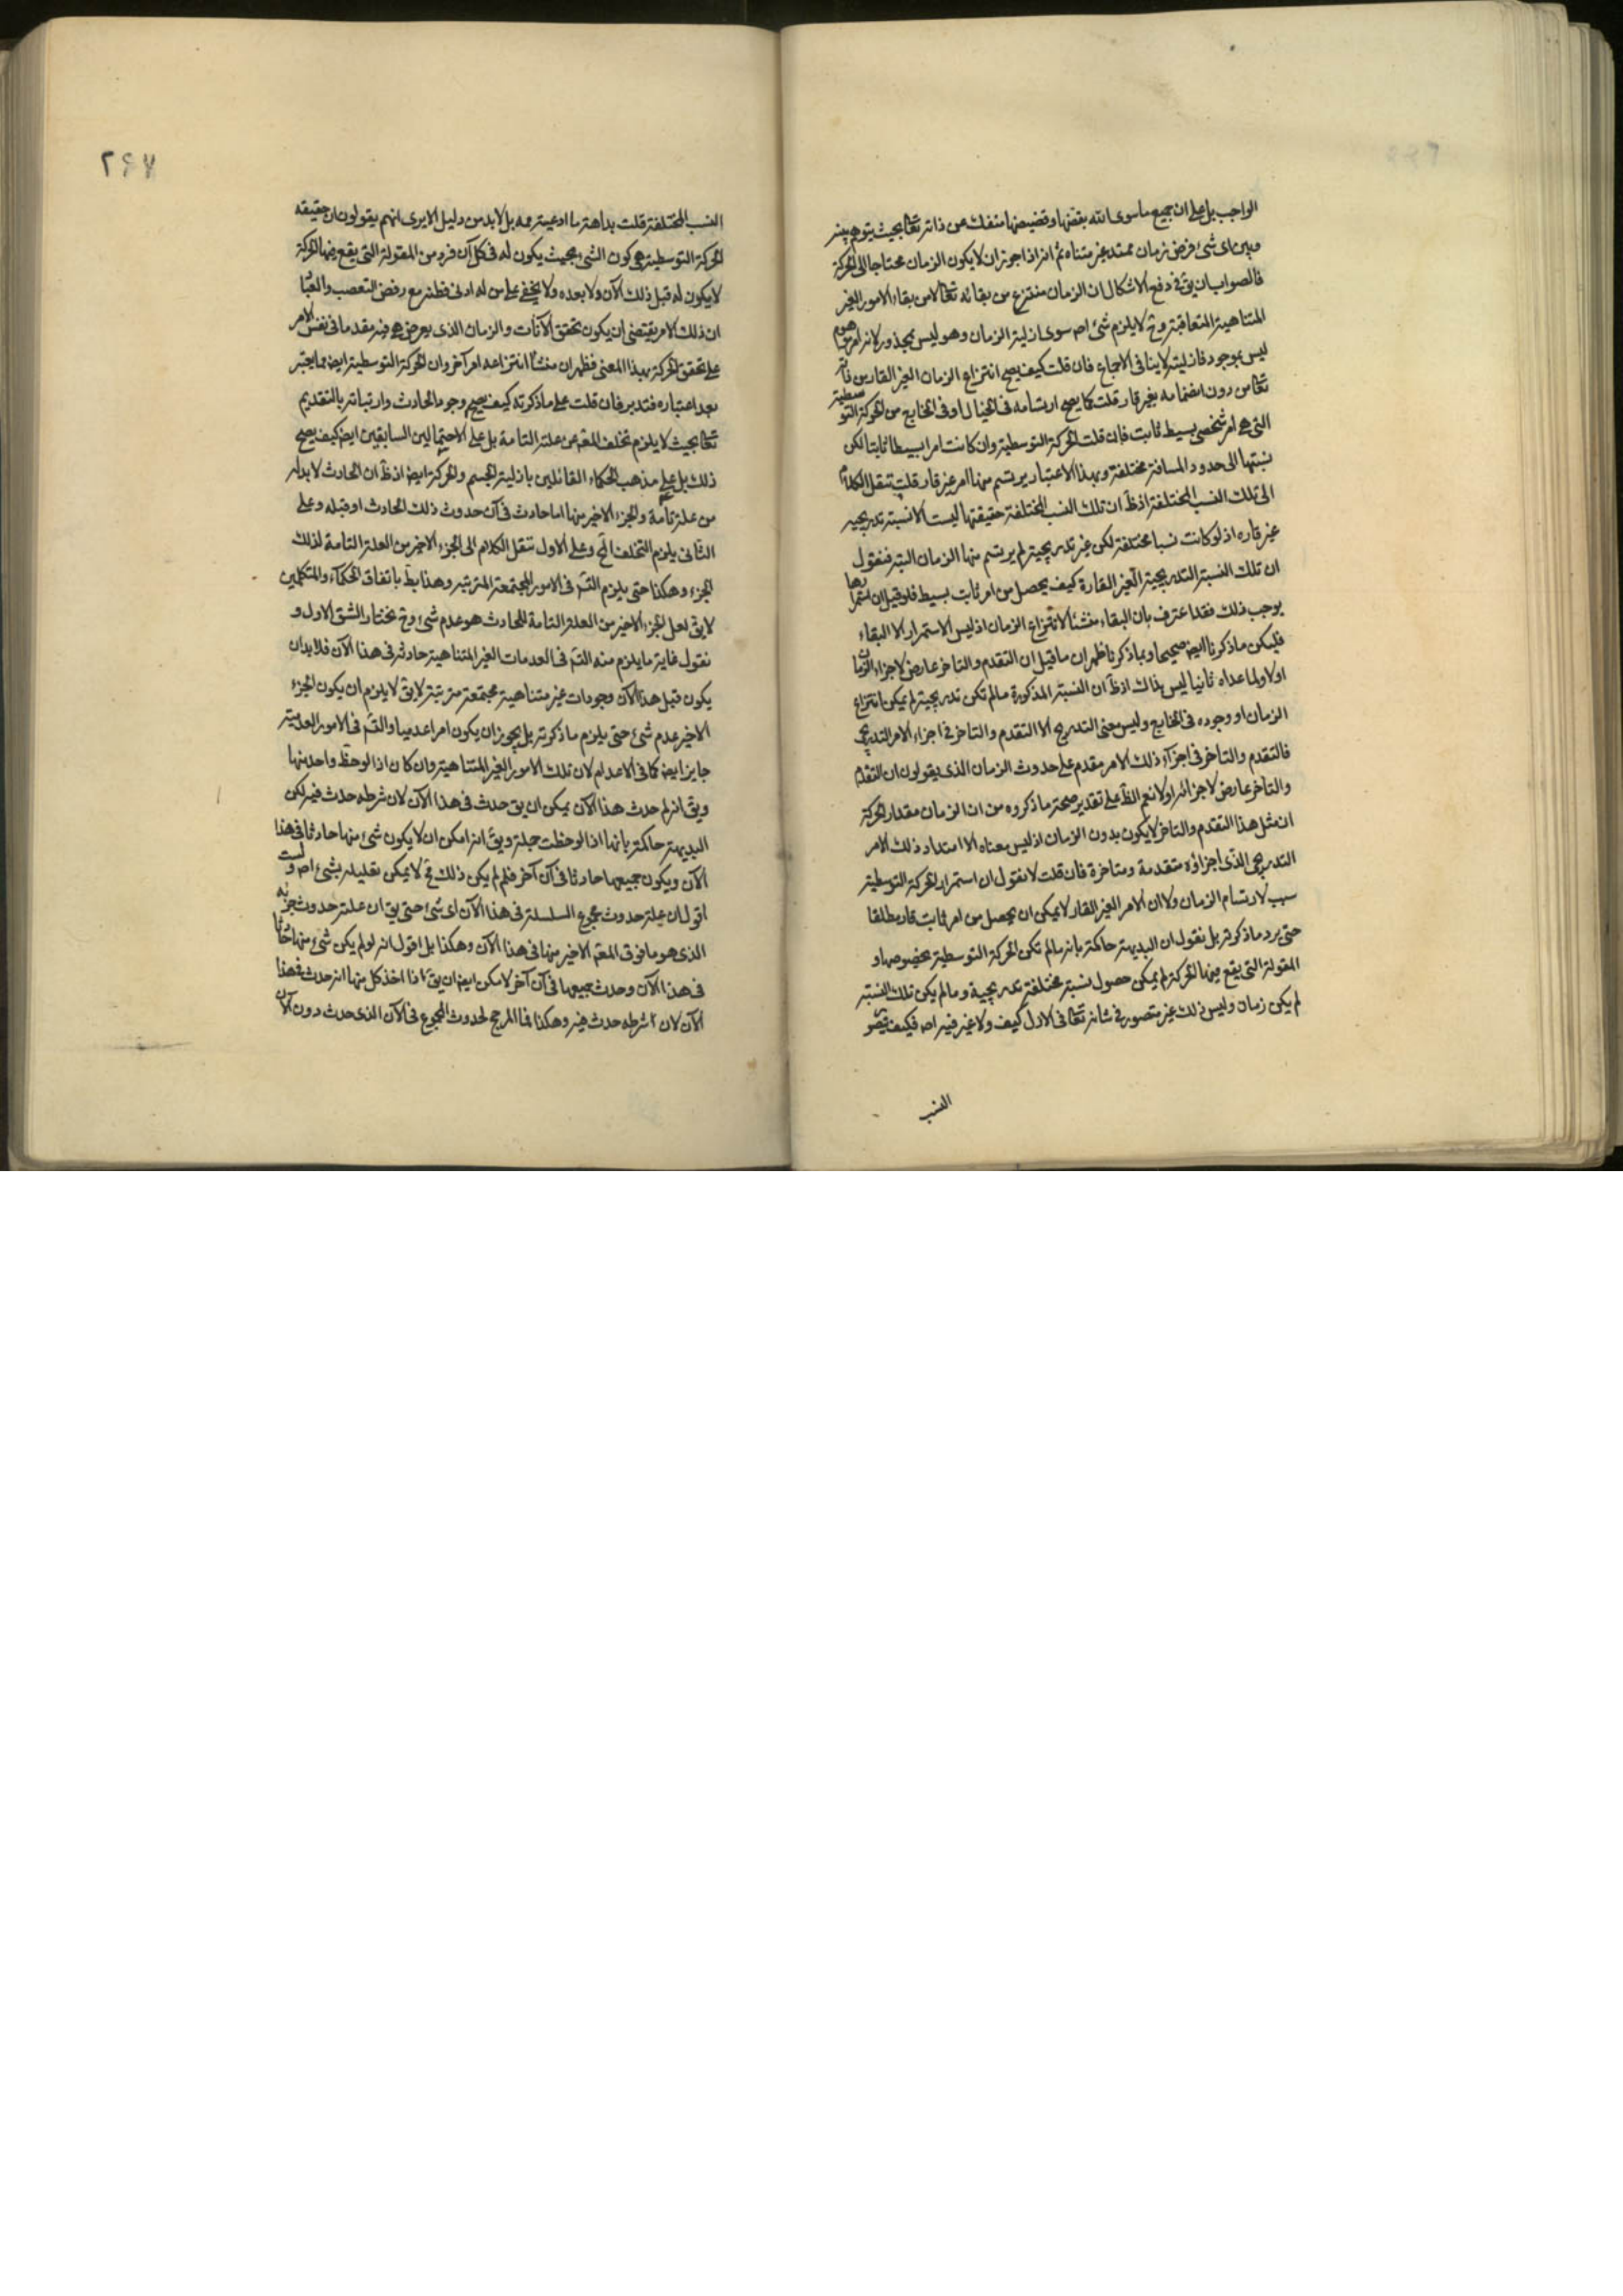 الواجب بل على ان جميع ما سوى الله بقضها وقضيضها منفك عن ذاته تعا بحيث يتوهم بينه
وبين اى شئ فرض زمان ممتد غير متناه ثم انه اذا جوز ان لا يكون الزمان محتاجا الى الحركة
فالصواب ان يق فى دفع الاشكال ان الزمان منتزع من بقائه تعا لا من بقاء الامور الغير
المتناهية المتعاقبة وح لا يلزم شئ اصه سوى ازلية الزمان وهو ليس بمحذور لانه امر موهوم
ليس بموجود فازليته لا ينافى الاجماع فان قلت كيف يصح انتزاع الزمان الغير القار من ذاته
تعا من دون انضمامه بغير قار قلت كما يصح ارتسامه فى الخيال او فى الخارج من الحركة التوسطية
التى هى امر شخصى بسيط ثابت فان قلت الحركة التوسطية وان كانت امرا بسيطا ثابتا لكن
نسبتها الى حدود المسافة مختلفة وبهذا الاعتبار يرتسم منها امر غير قار قلت ننقل الكلام
الى تلك النسب المختلفة اذ ظ ان تلك النسب المختلفة حقيقتها ليست الا نسبة تدريجية
غير قاره اذ لو كانت نسبا مختلفة لكن غير تدريجية لم يرتسم منها الزمان البتة فنقول
ان تلك النسبة التدريجية الغير القارة كيف يحصل من امر ثابت بسيط فلو قيل ان استمرارها
يوجب ذلك فقد اعترف بان البقاء منشئا لانتزاع الزمان اذ ليس الاستمرار الا البقاء
فليكن ما ذكرنا ايضه صحيحا وبما ذكرنا ظهر ان ما قيل ان التقدم والتاخر عارض لاجزاء الزمان
اولا ولما عداه ثانيا ليس بذاك اذ ظ ان النسبة المذكورة ما لم تكن تدريجية لم يمكن انتزاع
الزمان او وجوده فى الخارج وليس معنى التدريج الا التقدم والتاخر فى اجزاء الامر التدريجى
فالتقدم والتاخر فى اجزاء ذلك الامر مقدم على حدوث الزمان الذى يقولون ان التقدم
والتاخر عارض لاجزائه اولا نعم الظ على تقدير صحة ما ذكروه من ان الزمان مقدار الحركة
ان مثل هذا التقدم والتاخر لا يكون بدون الزمان اذ ليس معناه الا امتداد ذلك الامر
التدريجى الذى اجزاؤه متقدمة ومتاخرة فان قلت لا نقول ان استمرار الحركة التوسطية
سبب لارتسام الزمان ولا ان الامر الغير القار لا يمكن ان يحصل من امر ثابت قار مطلقا
حتى يرد ما ذكرته بل نقول ان البديهة حاكمة بانه ما لم تكن الحركة التوسطية بخصوصها و
المقولة التى يقع فيها الحركة لم يمكن حصول نسبة مختلفة تدريجية وما لم يكن تلك النسبة
لم يكن زمان وليس ذلك غير متصور فى شانه تعا فى الازل كيف ولا غير فيه اصه فكيف تتصور
النسب
٢٤٧
النسب المختلفة قلت بداهة ما ادعيته ممه بل لا بد من دليل الا يرى انهم يقولون ان حقيقة
الحركة التوسطية هى كون الشئ بحيث يكون له فى كل آن فرد من المقولة التى يقع فيها الحركة
لا يكون له قبل ذلك الآن ولا بعده ولا يخفى على من له ادنى فطنة مع رفض التعصب والعناد
ان ذلك الامر يقتضى ان يكون تحقق الآنات والزمان الذى يعرض هى فيه مقدما فى نفس الامر
على تحقق الحركة بهذا المعنى فظهر ان منشأ انتزاعه امر آخر وان الحركة التوسطية ايضه مما يعتبر
بعد اعتباره فتدبر فان قلت على ما ذكرته كيف يصح وجود الحادث وارتباته بالتقديم
تعا بحيث لا يلزم تخلف المعه عن علته التامة بل على الاحتمالين السابقين ايضه كيف يصح
ذلك بل على مذهب الحكماء القائلين بازلية الجسم والحركة ايضه اذ ظ ان الحادث لا بد له
من علة تامة والجزء الاخير منها اما حادث فى آن حدوث ذلك الحادث او قبله وعلى
الثانى يلزم التخلف المح وعلى الاول ننقل الكلام الى الجزء الاخير من العلة التامة لذلك
الجزء وهكذا حتى يلزم التسم فى الامور المجتمعة المترتبه وهذا بط باتفاق الحكماء والمتكلمين
لا يق لعل الجزء الاخير من العلة التامة للحادث هو عدم شئ وح نختار الشق الاول و
نقول غاية ما يلزم منه التسم فى العدمات الغير المتناهية حادثه فى هذا الآن فلا بد ان
يكون قبل هذا الآن وجودات غير متناهية مجتمعة مترتبة لا يق لا يلزم ان يكون الجزء
الاخير عدم شئ حتى يلزم ما ذكرته بل يجوز ان يكون امرا عدميا والتسم فى الامور العدمية
جايز ايضه كما فى الاعدام لان تلك الامور الغير المتناهية وان كان اذا لوحظ واحد منها
ويق انه لم حدث هذا الآن يمكن ان يق حدث فى هذا الآن لان شرطه حدث فيه لكن
البديهة حاكمة بانها اذا لوحظت جملة ويق انه امكن ان لا يكون شئ منها حادثا فى هذا
الآن ويكون جميعها حادثا فى آن آخر فلم لم يكن ذلك فح لا يمكن تعليله بشئ اصه ولست
اقول ان علة حدوث مجموع السلسلة فى هذا الآن اى شئ حتى يق ان علته حدوث جزئه
الذى هو ما فوق المعه الاخير منها فى هذا الآن وهكذا بل اقول انه لو لم يكن شئ منها حادثا
فى هذا الآن وحدث جميعها فى آن آخر لامكن ايضه ان يق اذا اخذ كل منها انه حدث فى هذا
الآن لان شرطه حدث فيه وهكذا فما المرجح لحدوث المجموع فى الآن الذى حدث دون الآن